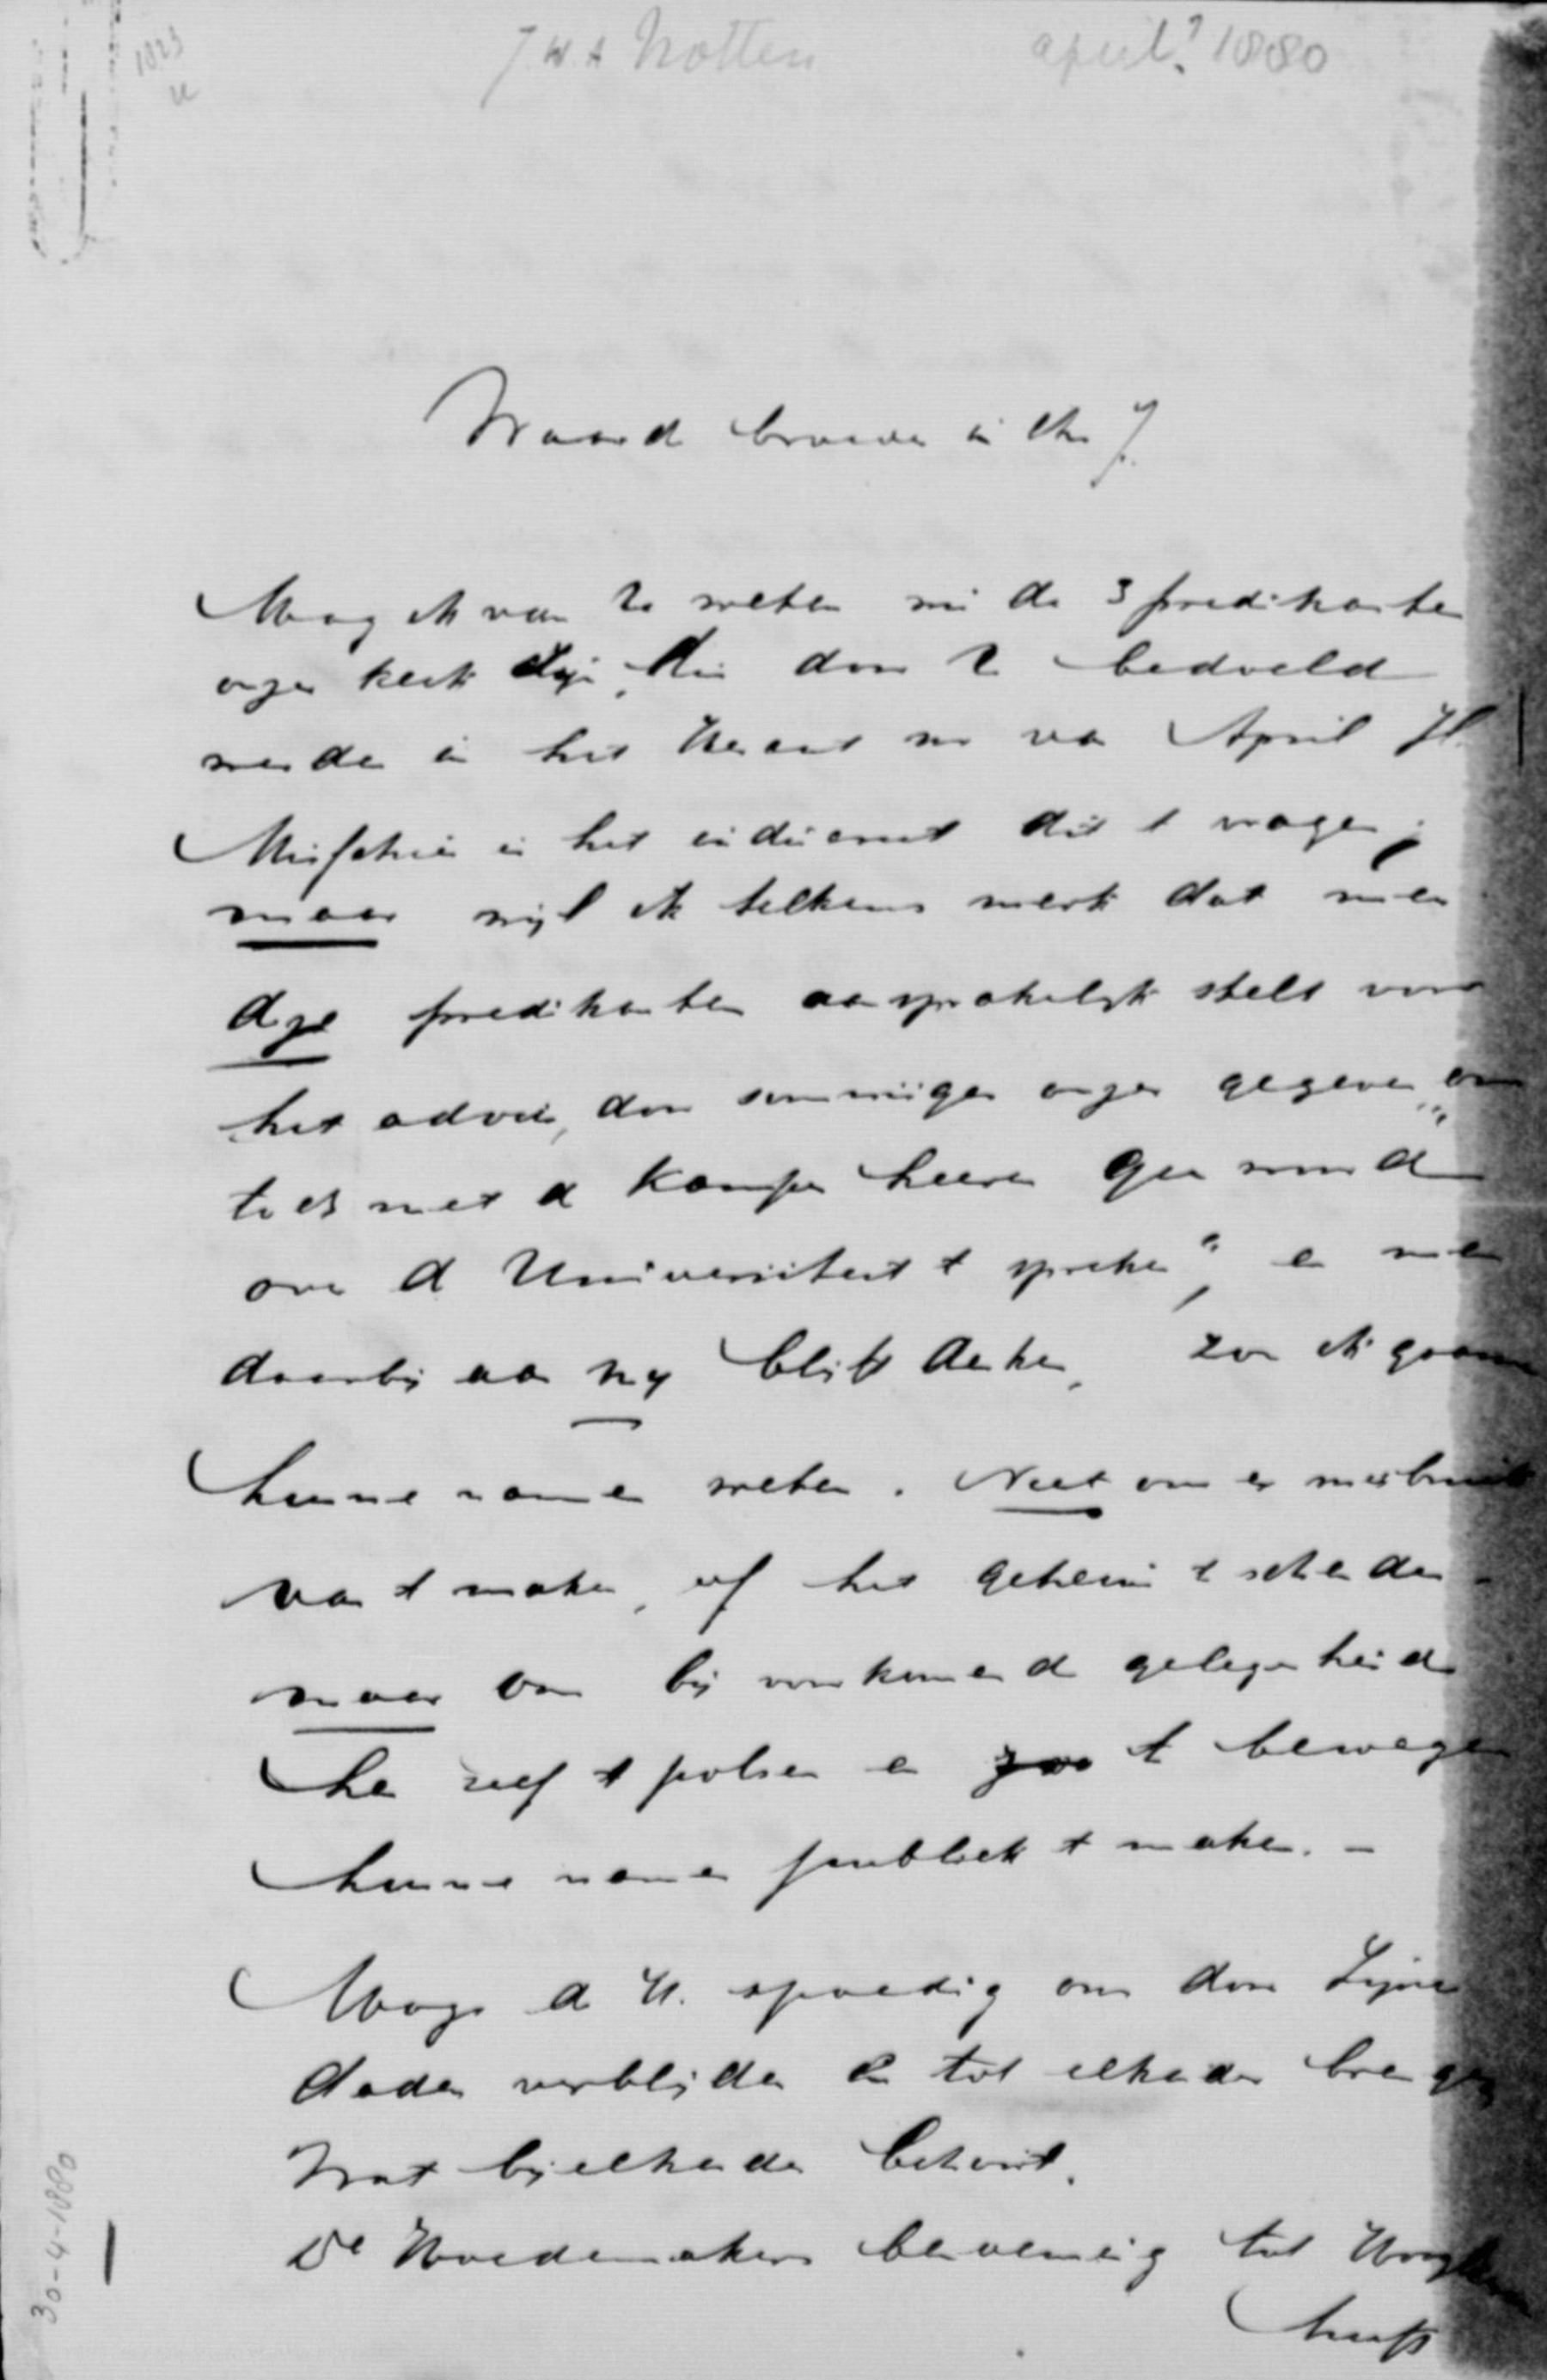 1023
u
J.W.A Notten
april? 1880
Waarde broeder in Chr J.
Mag ik van U weten wie de 3 predikanten
onzer kerk zijn, die door U bedoeld
werden in het Heraut nr van April jl
Misschien is het indiscreet dit te vragen;
maar wijl ik telkens merk dat men
deze predikanten aansprakelijk stelt voor
het advies, door sommigen onzer gegeven, om
toch met de Kamper heeren
over de Universiteit te spreken", en men
daarbij aan mij blijft denken, zou ik gaarne
hunne namen weten. Niet om er misbruik
van te maken, of het geheim te schenden -
maar om bij voorkomende gelegenheid
hen zelf te polsen en te bewegen
hunne namen publiek te maken. -
Moge de H. spoedig ons door Zijne
daden verblijden en tot elkander brengen
Wat bij elkander behoort.
De Hoedemakers benoeming tot Hoogleer
heeft
30-4-1880